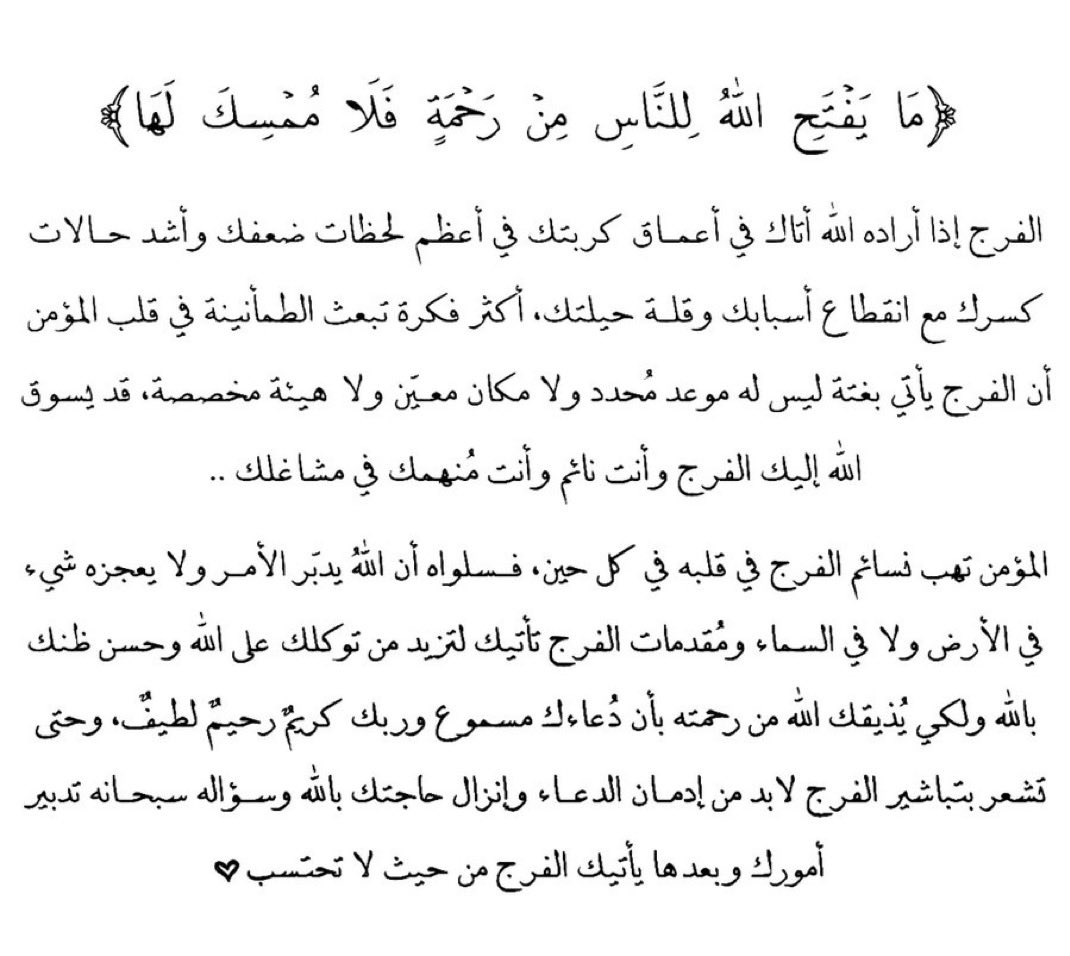 ﴿مَا يَفْتَحِ اللهُ لِلنَّاسِ مِنْ رَحْمَةٍ فَلَا مُمْسِكَ لَهَا﴾
الفرج إذا أراده الله أتاك في أعمـاق كربتك في أعظم لحظات ضعفك وأشد حـالات
كسرك مع انقطاع أسبابك وقلـة حيلتك، أكثر فكرة تبعث الطمأنينة في قلب المؤمن
أن الفرج يأتي بغتة ليس له موعد مُحدد ولا مكان معـيّن ولا هيئة مخصصة، قد يسوق
الله إليك الفرج وأنت نائم وأنت مُنهمك في مشاغلك ..
المؤمن تهب نسائم الفرج في قلبه في كل حين، فـسلواه أن اللهُ يدبّر الأمـر ولا يعجزه شيء
في الأرض ولا في السماء ومُقدمات الفرج تأتيك لتزيد من توكلك على الله وحسن ظنك
بالله ولكي يُذيقك الله من رحمته بأن دُعاءك مسموع وربك كريمٌ رحيمٌ لطيفٌ، وحتى
تشعر بتباشير الفرج لابد من إدمـان الدعـاء وإنزال حاجتك بالله وسـؤاله سبحـانه تدبير
أمورك وبعدها يأتيك الفرج من حيث لا تحتسب♥